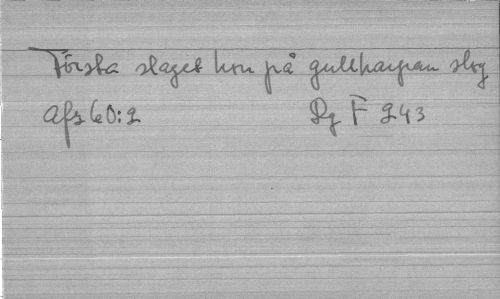 Första slaget hon på gullharpan slog
Afz 60:2 Dg F 243